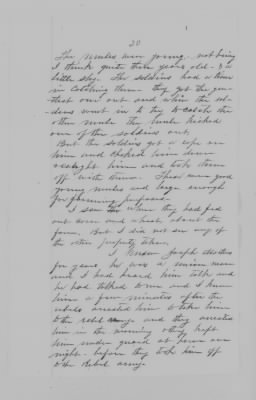 20
The mules were young, - not being
I think quite three years old - & a
little shy. The soldiers had a time
in catching them - they got the gen-
that one out and when the sol-
diers went in to try to catch the
other mule the mule kicked
one of the soldiers out.
But the soldiers got a rope on
him and choked him down
caught him and took them
off with them. These were good
young mules and large enough
for farming purposes.
I saw too when they had fed
out corn and wheat about the
farm. But I did not see any of
the other property taken.
I knew Joseph
for years he was a union man
and I had heard him talk and
he had talked to me and I knew
him a few minutes after the
rebels arrested him to take him
to the rebel army and they arrested
him in the morning & they kept
him under guard at home one
night - before they took him off
to the Rebel army